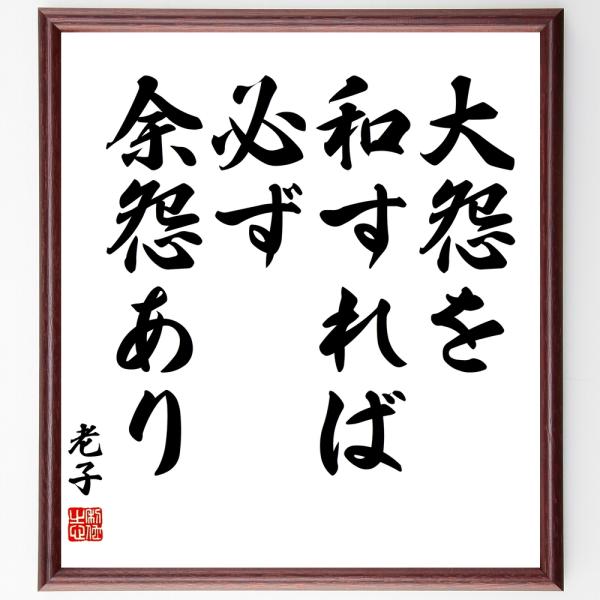 大怨を
和すれば
必ず
余怨あり
老子